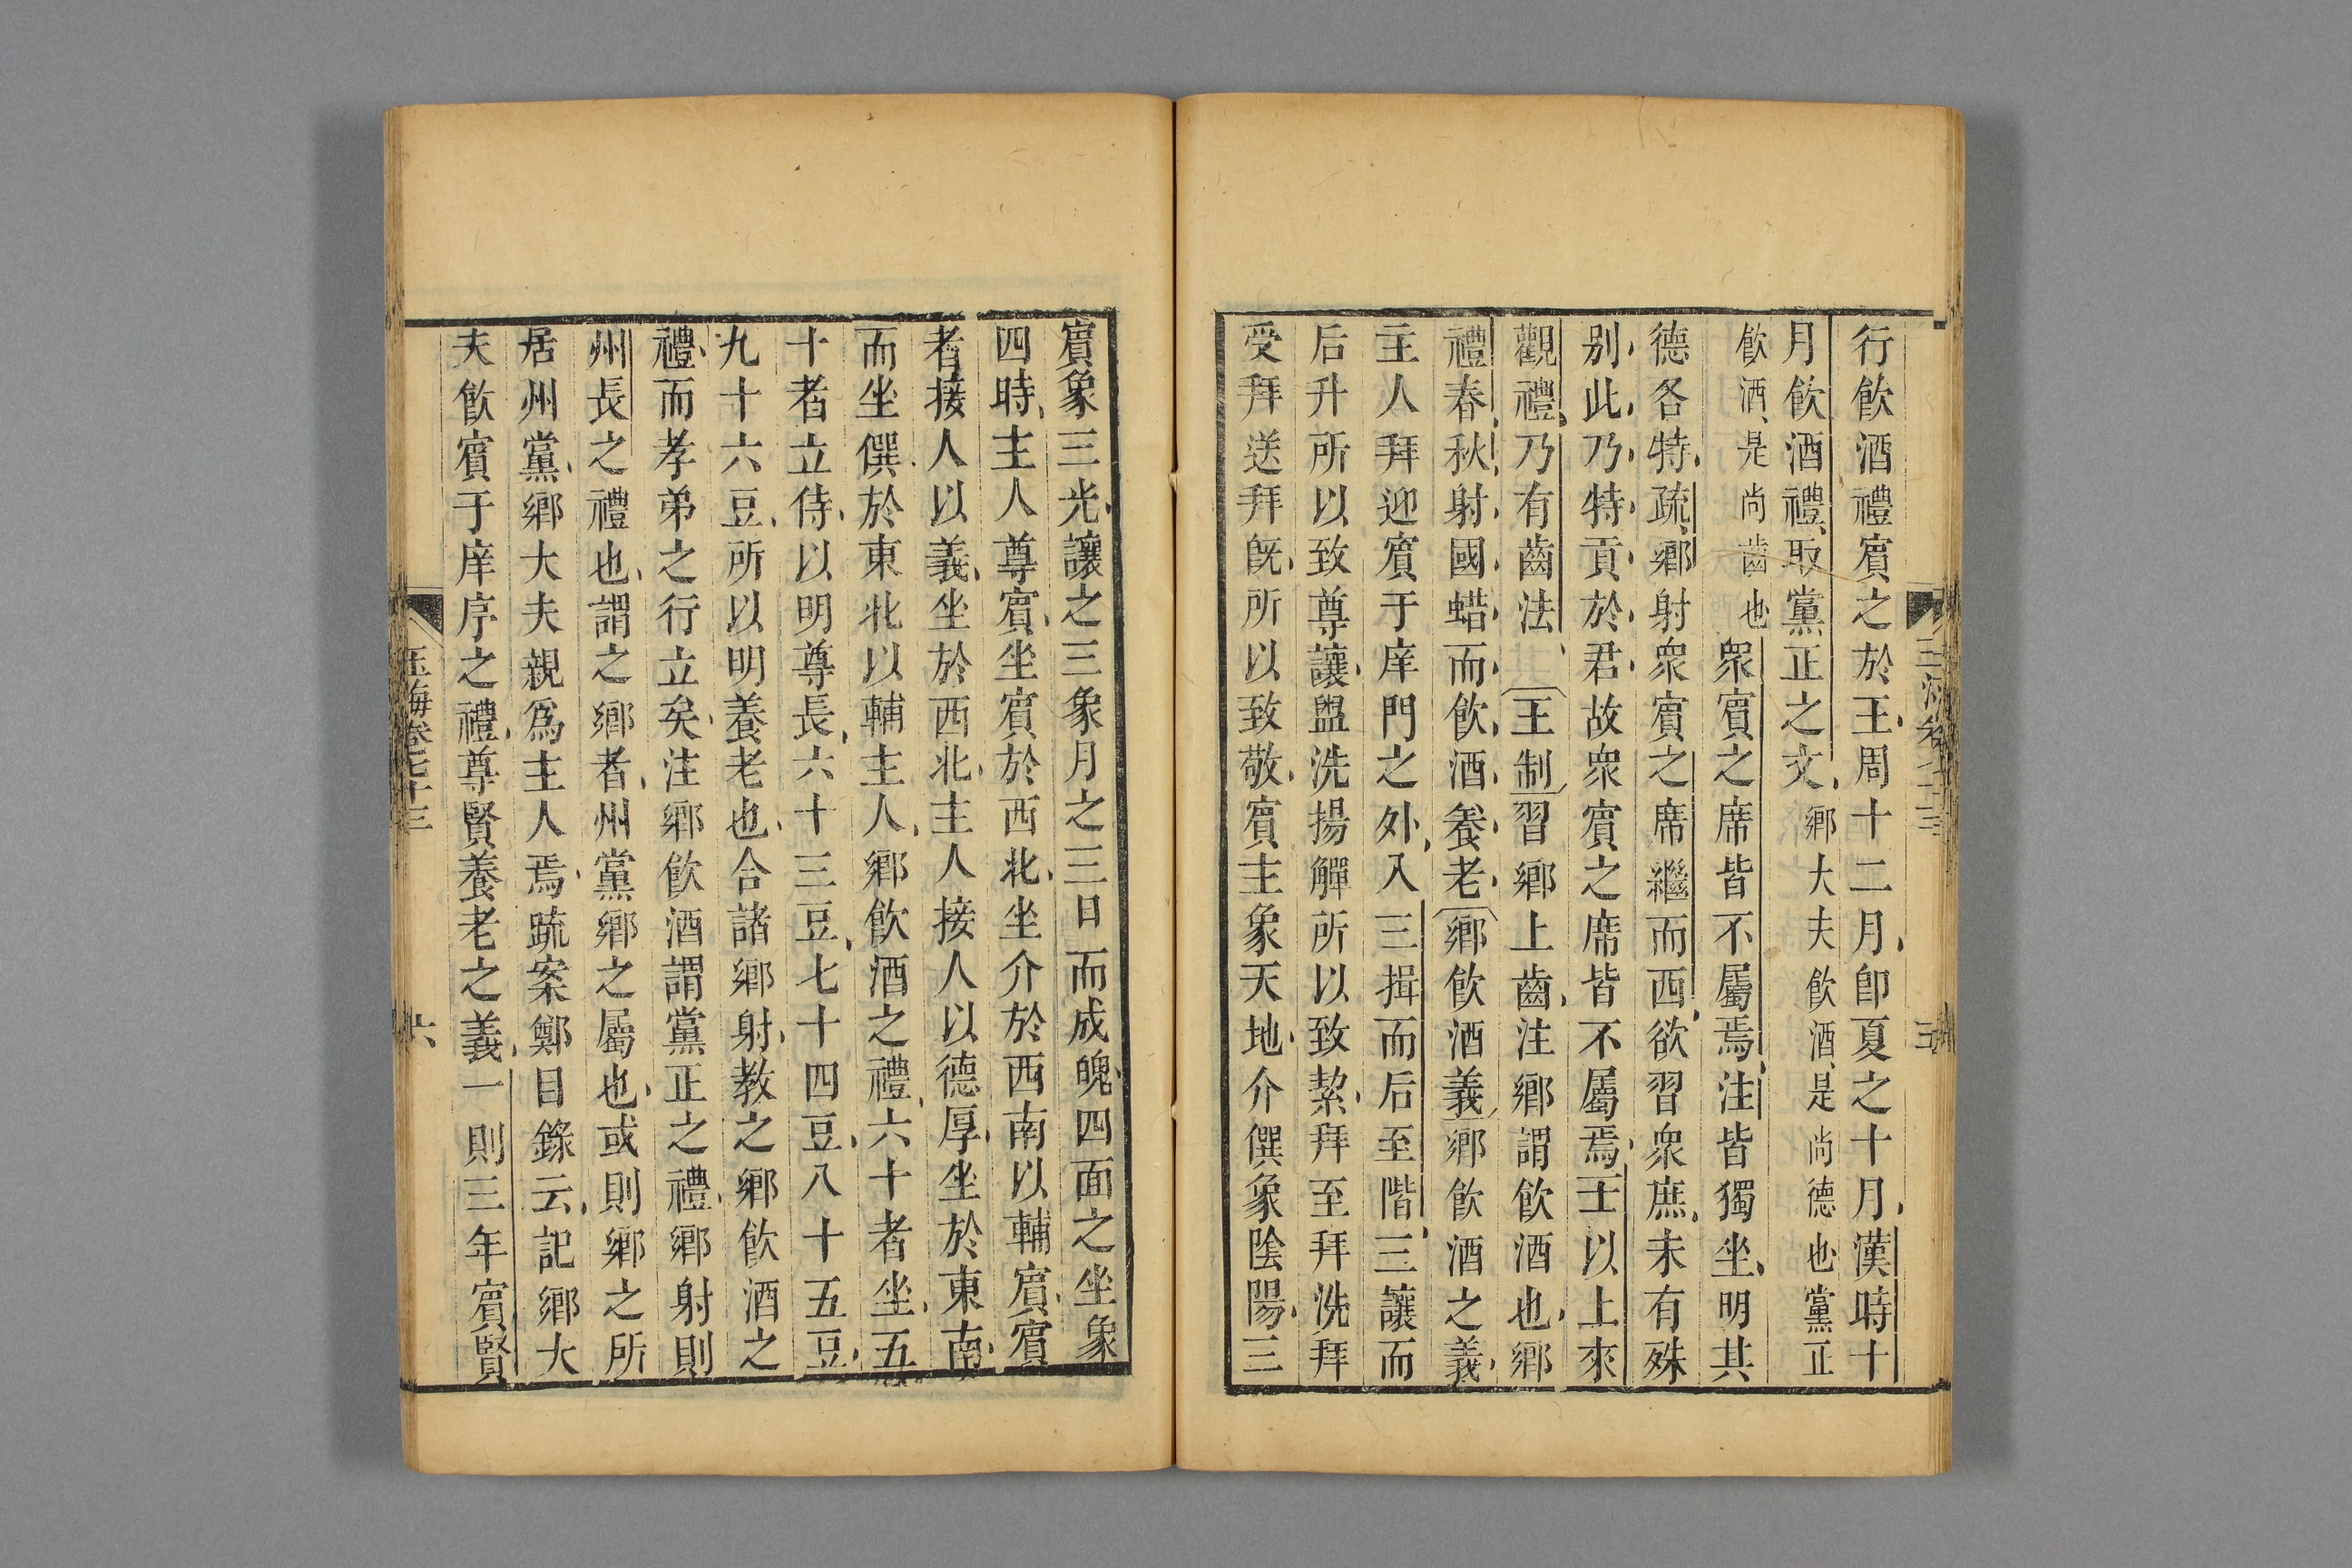 行飲酒禮賓之於王周十二月卽夏之十月漢時十
月飲酒禮取黨正之文鄉大夫飲酒是尚德也黨正
飲酒是尚齒也衆賓之席皆不屬焉注皆獨坐明其
德各特疏鄉射衆賓之席繼而西欲習衆庶未有殊
别此乃特貢於君故衆賓之席皆不屬焉王以上來
觀禮乃有齒法王制習鄉上齒注鄉謂飲酒也鄉
禮春秋射國蜡而飲酒養老鄉飲酒義鄉飲酒之義
主人拜迎賓于庠門之外入三揖而后至階三讓而
后升所以致尊讓盥洗揚觶所以致絜拜至拜洗拜
受拜送拜旣所以致敬賓主象天地介僎象陰陽三
賓象三光讓之三象月之三日而成魄四面之坐象
四時主人尊賓坐賓於西北坐介於西南以輔賓賓
者接人以義坐於西北主人接人以德厚坐於東南
而坐僎於東北以輔主人鄉飲酒之禮六十者坐五
十者立侍以明尊長六十三豆七十四豆八十五豆
九十六豆所以明養老也合諸鄉射教之鄉飲酒之
禮而孝弟之行立矣注鄉飲酒謂黨正之禮鄉射則
州長之禮也謂之鄉者州黨鄉之屬也或則鄉之所
居州黨鄉大夫親爲主人焉疏案鄭目錄云記鄉大
夫飲賓于庠序之禮尊賢養老之義一則三年賓賢
玉海卷七十三
六